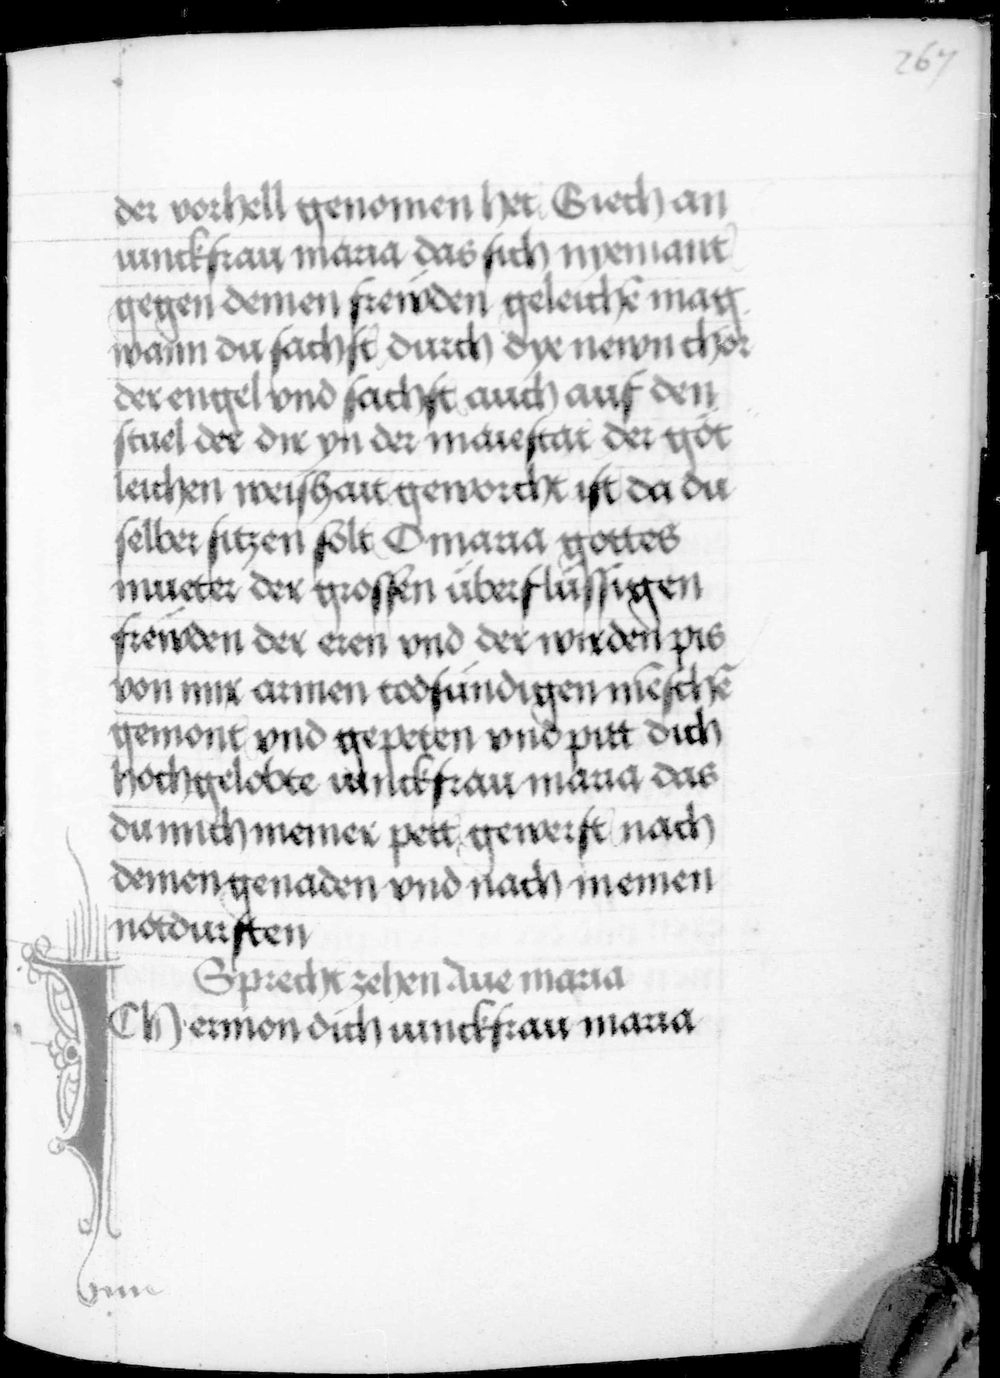 267
der vorhell genomen het Siech an
iunckfrau maria das sich nyemant
gegen deinen freẅden geleichē mag
wann du sachst durch dye newn chör
der engel vnd sachst auch auf den
stuel der dir yn der maiestat der göt
leichen weishait geworcht ist da du
selber sitzen solt O maria gottes
mueter der grossen überflüssigen
freẅden der eren vnd der wirden pis
von mir armen todsündigen mēschē
gemont vnd gepeten vnd pitt dich
hochgelobte iunckfrau maria das
du mich meiner pett gewerst nach
deinen genaden vnd nach meinen
notdurften
Sprecht zehen Aue maria
ICh ermon dich iunckfrau maria